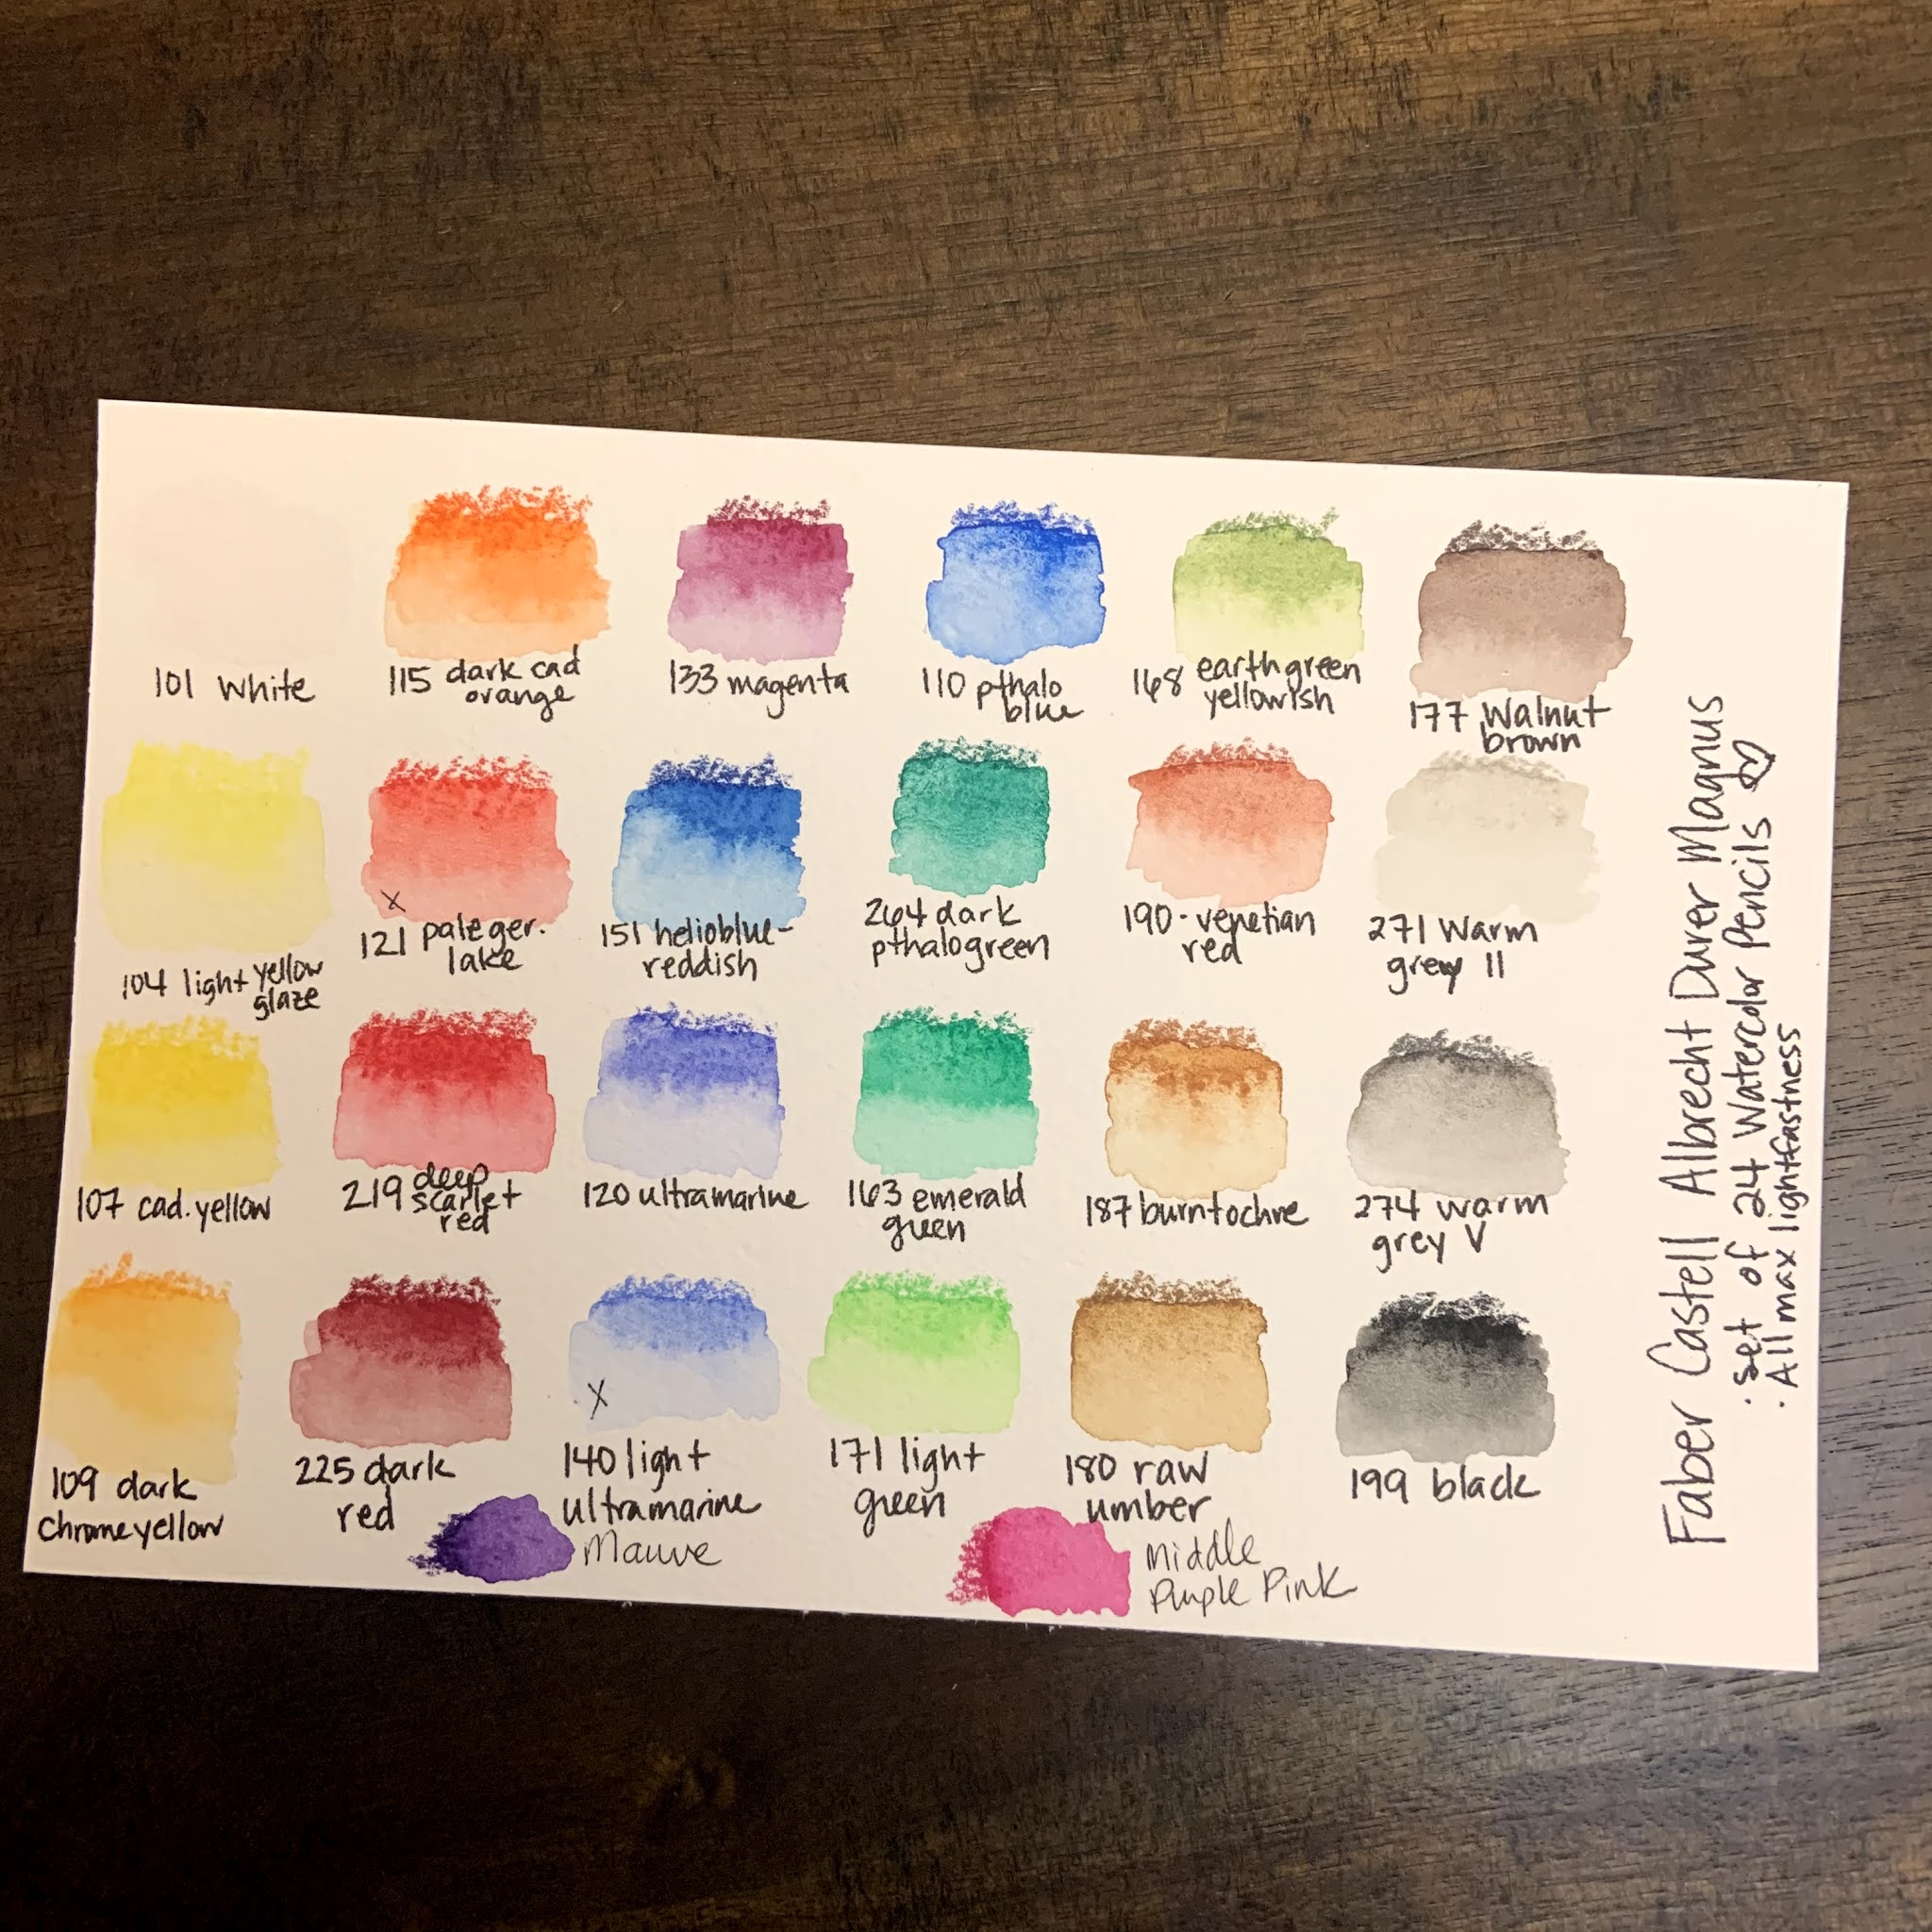 101 White
115 dark cad
orange
133 magenta
110 pthalo
blue
168 earth green
yellowish
177 Walnut
brown
104 light yellow
glaze
X
121 pale ger.
lake
151 helioblue-
reddish
264 dark
pthalogreen
190 - venetian
red
271 Warm
grey II
107 cad. yellow
219 deep
scarlet
red
120 ultramarine
163 emerald
green
187 burnt ochre
274 warm
grey V
109 dark
chrome yellow
225 dark
red
X
140 light
ultramarine
171 light
green
180 raw
umber
199 black
Mauve
Middle
Purple Pink
Faber Castell Albrecht Durer Magnus
· Set of 24 Watercolor Pencils ♡
· All max lightfastness